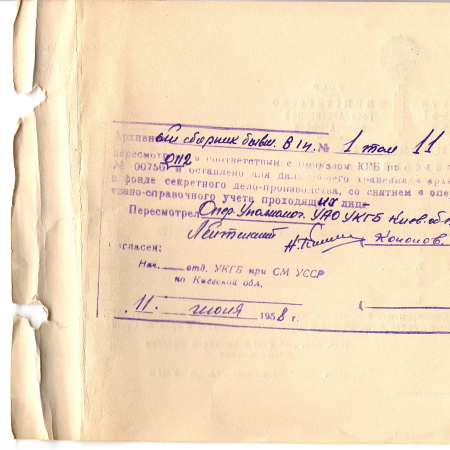 Архивный сборник бывш. ВIн. № 1 том 11
пересмотр в соответствии с приказом КГБ при
№ 00750 и оставлено для дальнейшего хранения в архи
в фонде секретного дело-производства, со снятием с опе
тивно-справочного учета проходящих лиц
Пересмотрел Опер. Уполномоч. УАО УКГБ Киев. обл
Лейтенант Кононов
Согласен:
Нач. отд. УКГБ при СМ УССР
по Киевской обл.
11. июля 1958 г.